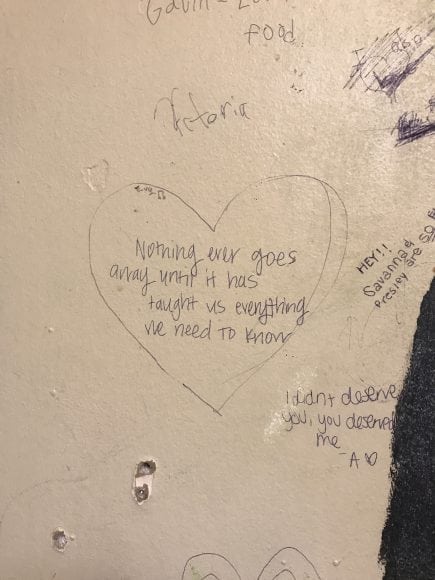 Gavin
food
Victoria
Nothing ever goes
array until it has
taught us everything
we need to know
HEY!!
Savanna &
Presley are so
I didnt deserve
you, you deserved
me
-A